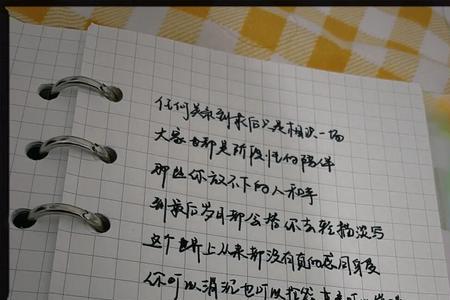 任何关系到最后只是相识一场
大家都是阶段性的陪伴
那些你放不下的人和事
到最后岁月都会替你去轻描淡写
这个世界上从来都没有真的感同身受
你可以消沉也可以